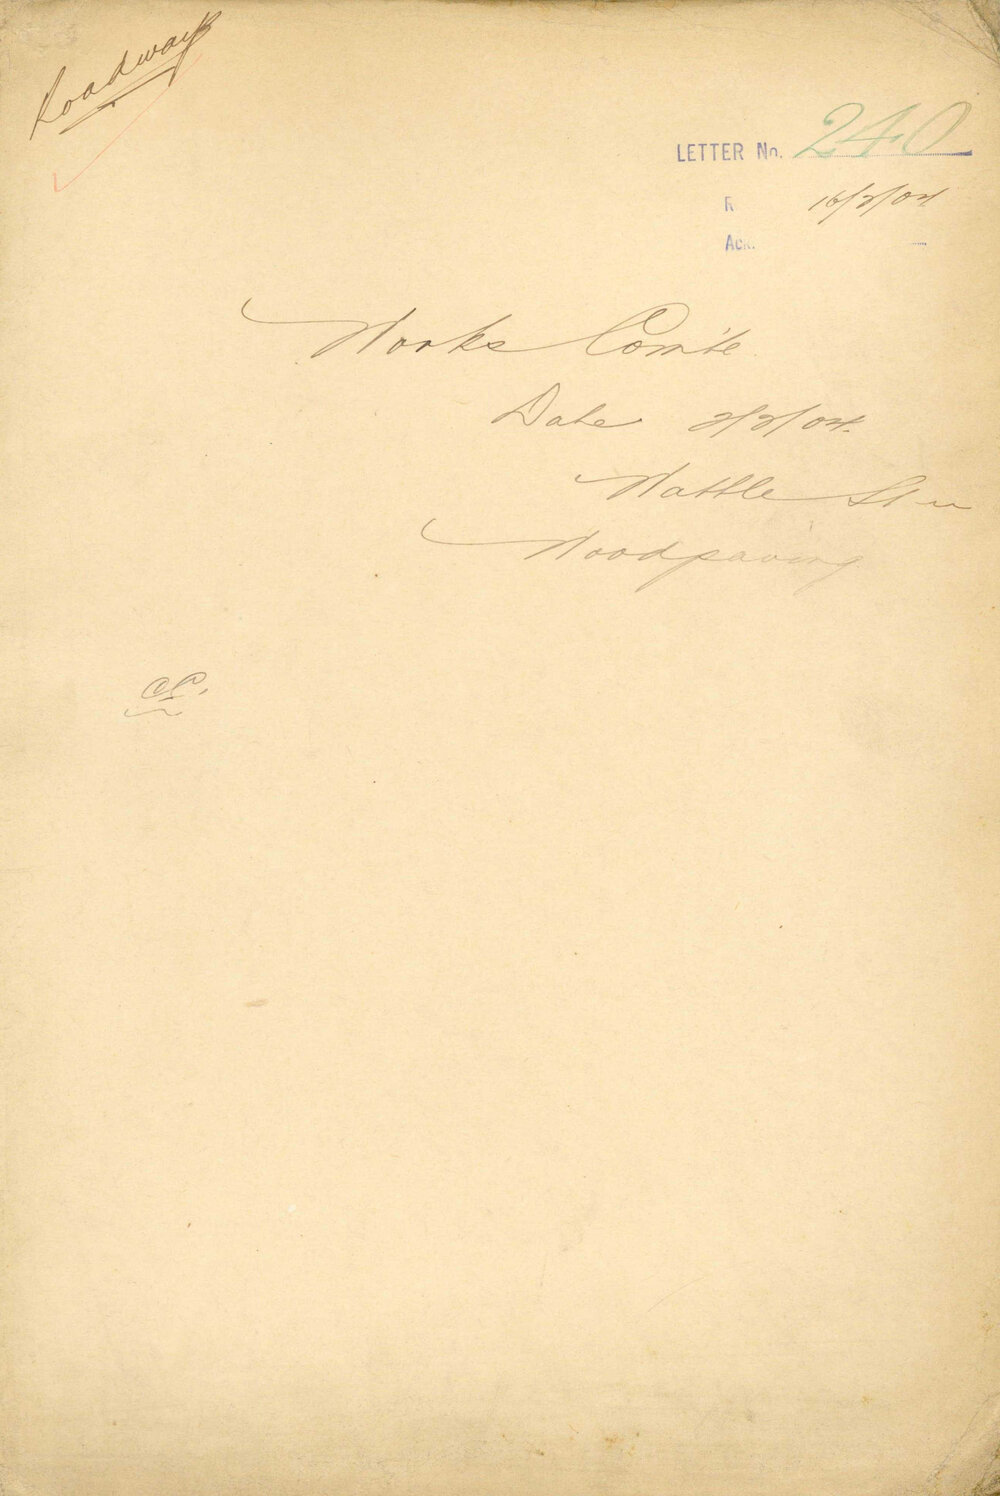 Roadways
LETTER No. 240
R 16/2/04
Ack.
Works Com'te
Date 2/2/04.
Wattle St
Woodpaving